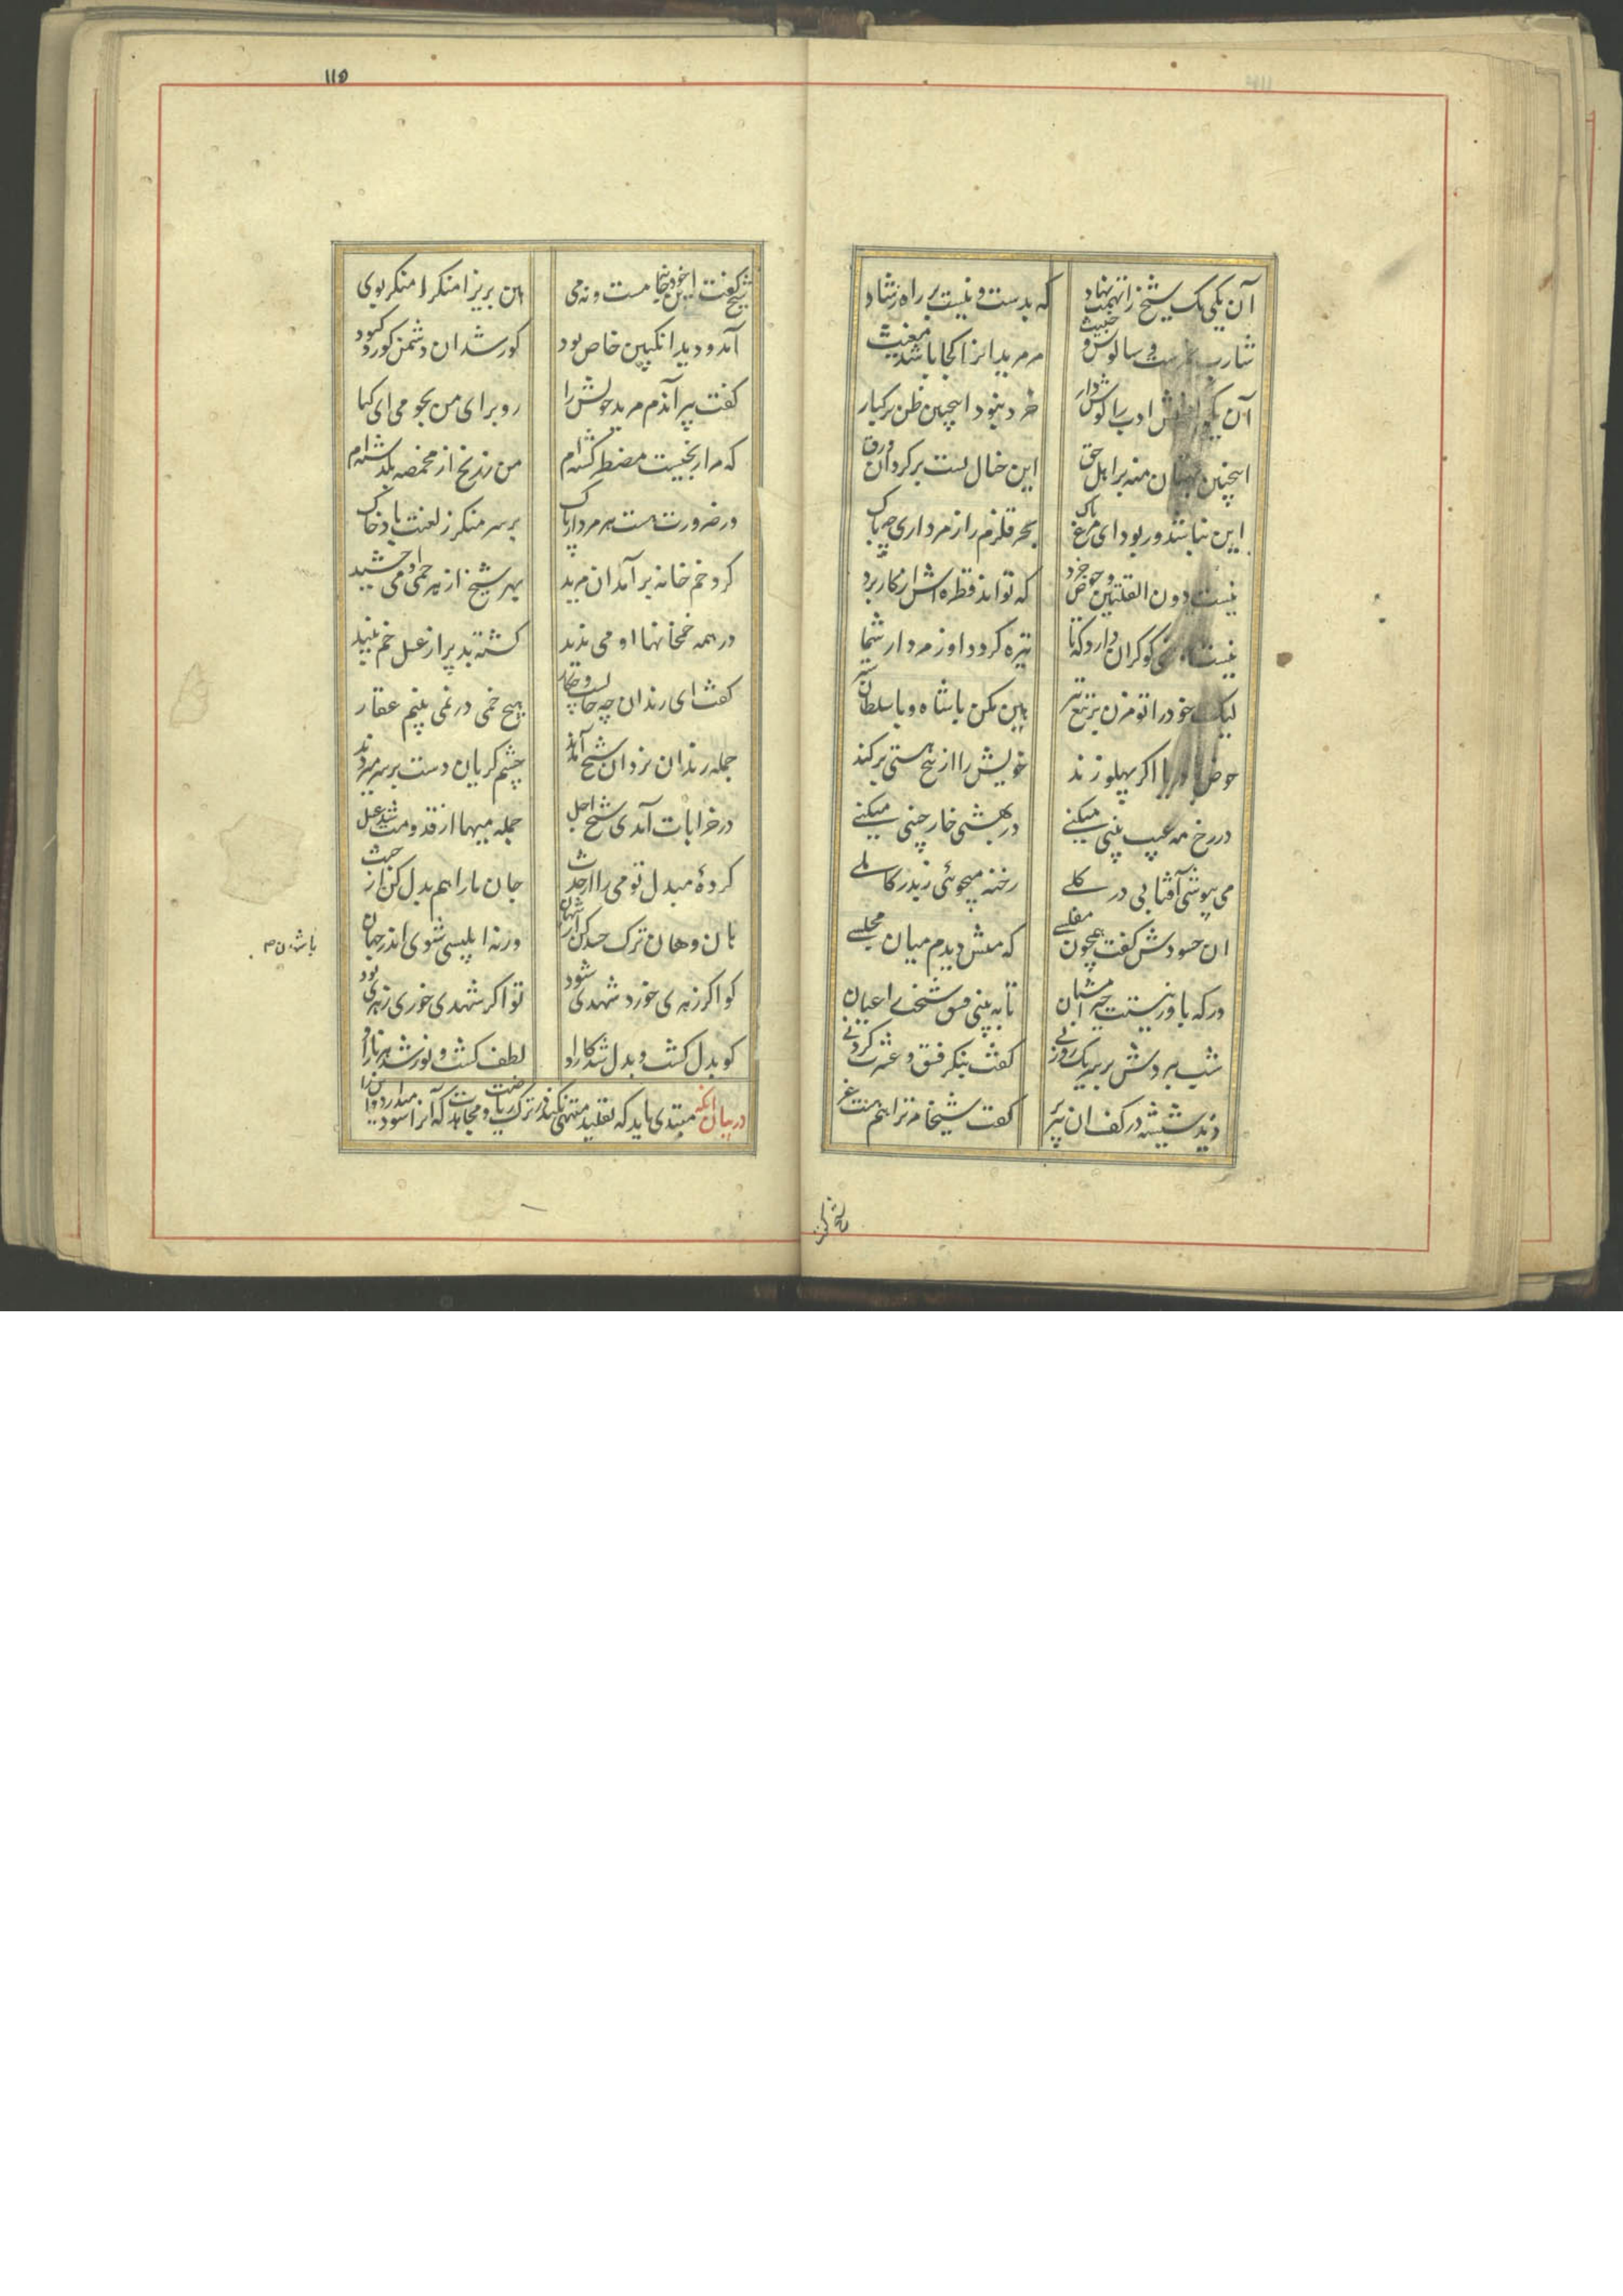 آن یکی یک شیخ را تهمت نهاد که بدست و نیست بر راه رشاد
شارب و سالوس و خبیث مر مریدانرا کجا باشد مغیث
آن یکی ادب را گوش دار خرد نبود اینچنین ظن بر کبار
اینچنین بهتان منه بر اهل حق این خیال تست برگردان ورق
این نباشد ور بود ای مرغ خاک بحر قلزم را ز مرداری چه باک
نیست دون القلتین و حوض خرد که تواند قطره اش از کار برد
تیره گردد او ز مردار شما
لیک خود را تو مزن بر تیغ تیز هین مکن با شاه و با سلطان ستیز
حوض با دریا اگر پهلو زند خویش را از بیخ هستی برکند
در رخ مه عیب بینی میکنی در بهشتی خار چینی میکنی
می بپوشی آفتابی در گلی رخنه میجوئی ز بدر کاملی
ان حسودش گفت همچون مفلسی که منش دیدم میان مجلسی
ورکه باور نیستت خیز امشبان تا به بینی فسق شیخت اعیان
شب ببردش بر سر یک روزنی گفت بنگر فسق و عشرت کردنی
دید شیشه در کف ان پیر پر گفت شیخا مر ترا هم هست غر
۱۱۵
شیخ گفت این خود نه جامست و نه می هین بزیر آ منکرا منکر بوی
آمد و دید انگبین خاص بود کور شد ان دشمن کور و کبود
گفت پیر آندم مرید خویش را رو برای من بجو می ای کیا
که مرا رنجیست مضطر گشته ام من ز رنج از مخمصه بگذشته ام
در ضرورت هست هر مردار پاک بر سر منکر ز لعنت باد خاک
گرد خم خانه برآمد ان مرید بهر شیخ از هر خمی او می چشید
در همه خمخانها او می ندید گشته بد پر از عسل خم نبید
گفت ای رندان چه حالست و چه کار هیچ خمی در نمی بینم عقار
جمله رندان نزد ان شیخ آمدند چشم گریان دست بر سر میزدند
در خرابات آمدی شیخ اجل جمله میها از قدومت شد عسل
کردهٔ مبدل تو می را از حدث جان ما را هم بدل کن از خبث
هان و هان ترک حسد کن با شهان ورنه ابلیسی شوی اندر جهان
کو اگر زهری خورد شهدی شود تو اگر شهدی خوری زهری بود
کو بدل گشت و بدل شد کار او لطف گشت و نور شد هر نار او
در بیان انکه مبتدی باید که تقلید منتهی نکند در ترک ریاضت و مجاهدت که آنرا سود